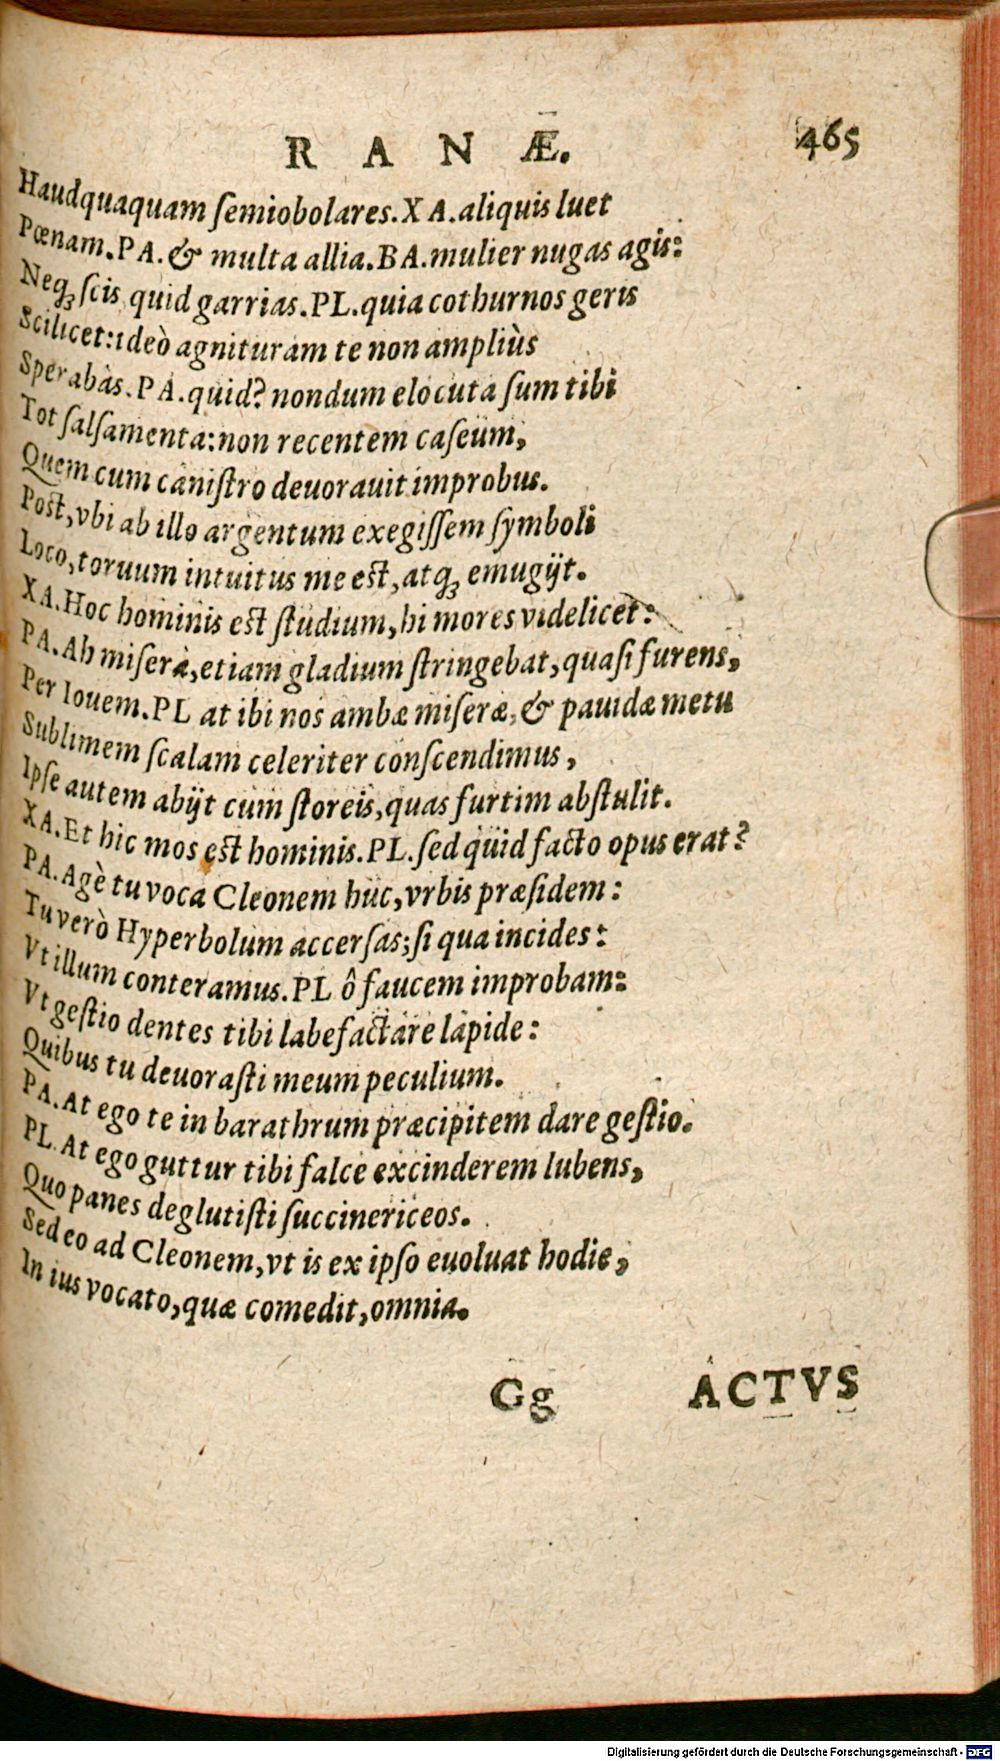 R A N Æ. 465
Haudquaquam ſemiobolares. XA. aliquis luet
Pœnam. PA. & multa allia. BA. mulier nugas agis:
Neqꝫ ſcis quid garrias. PL. quia cothurnos geris
Scilicet: ideò agnituram te non ampliùs
Sperabas. PA. quid? nondum elocuta ſum tibi
Tot ſalſamenta: non recentem caſeum,
Quem cum caniſtro deuorauit improbus.
Post, vbi ab illo argentum exegiſſem ſymboli
Loco, toruum intuitus me est, atqꝫ emugijt.
XA. Hoc hominis est ſtudium, hi mores videlicet:
PA. Ah miſera, etiam gladium ſtringebat, quaſi furens,
Per Iouem. PL at ibi nos ambæ miſeræ, & pauidæ metu
Sublimem ſcalam celeriter conſcendimus,
Ipſe autem abijt cum ſtoreis, quas furtim abſtulit.
XA. Et hic mos est hominis. PL. ſed quid facto opus erat?
PA. Agè tu voca Cleonem huc, vrbis præſidem:
Tu verò Hyperbolum accerſas; ſi qua incides:
Vt illum conteramus. PL ô faucem improbam:
Vt geſtio dentes tibi labefactare lapide:
Quibus tu deuoraſti meum peculium.
PA. At ego te in barathrum præcipitem dare geſtio.
PL. At ego guttur tibi falce excinderem lubens,
Quo panes deglutiſti ſuccinericeos.
Sed eo ad Cleonem, vt is ex ipſo euoluat hodie,
In ius vocato, quæ comedit, omnia.
Gg ACTVS
Digitalisierung gefördert durch die Deutsche Forschungsgemeinschaft - DFG